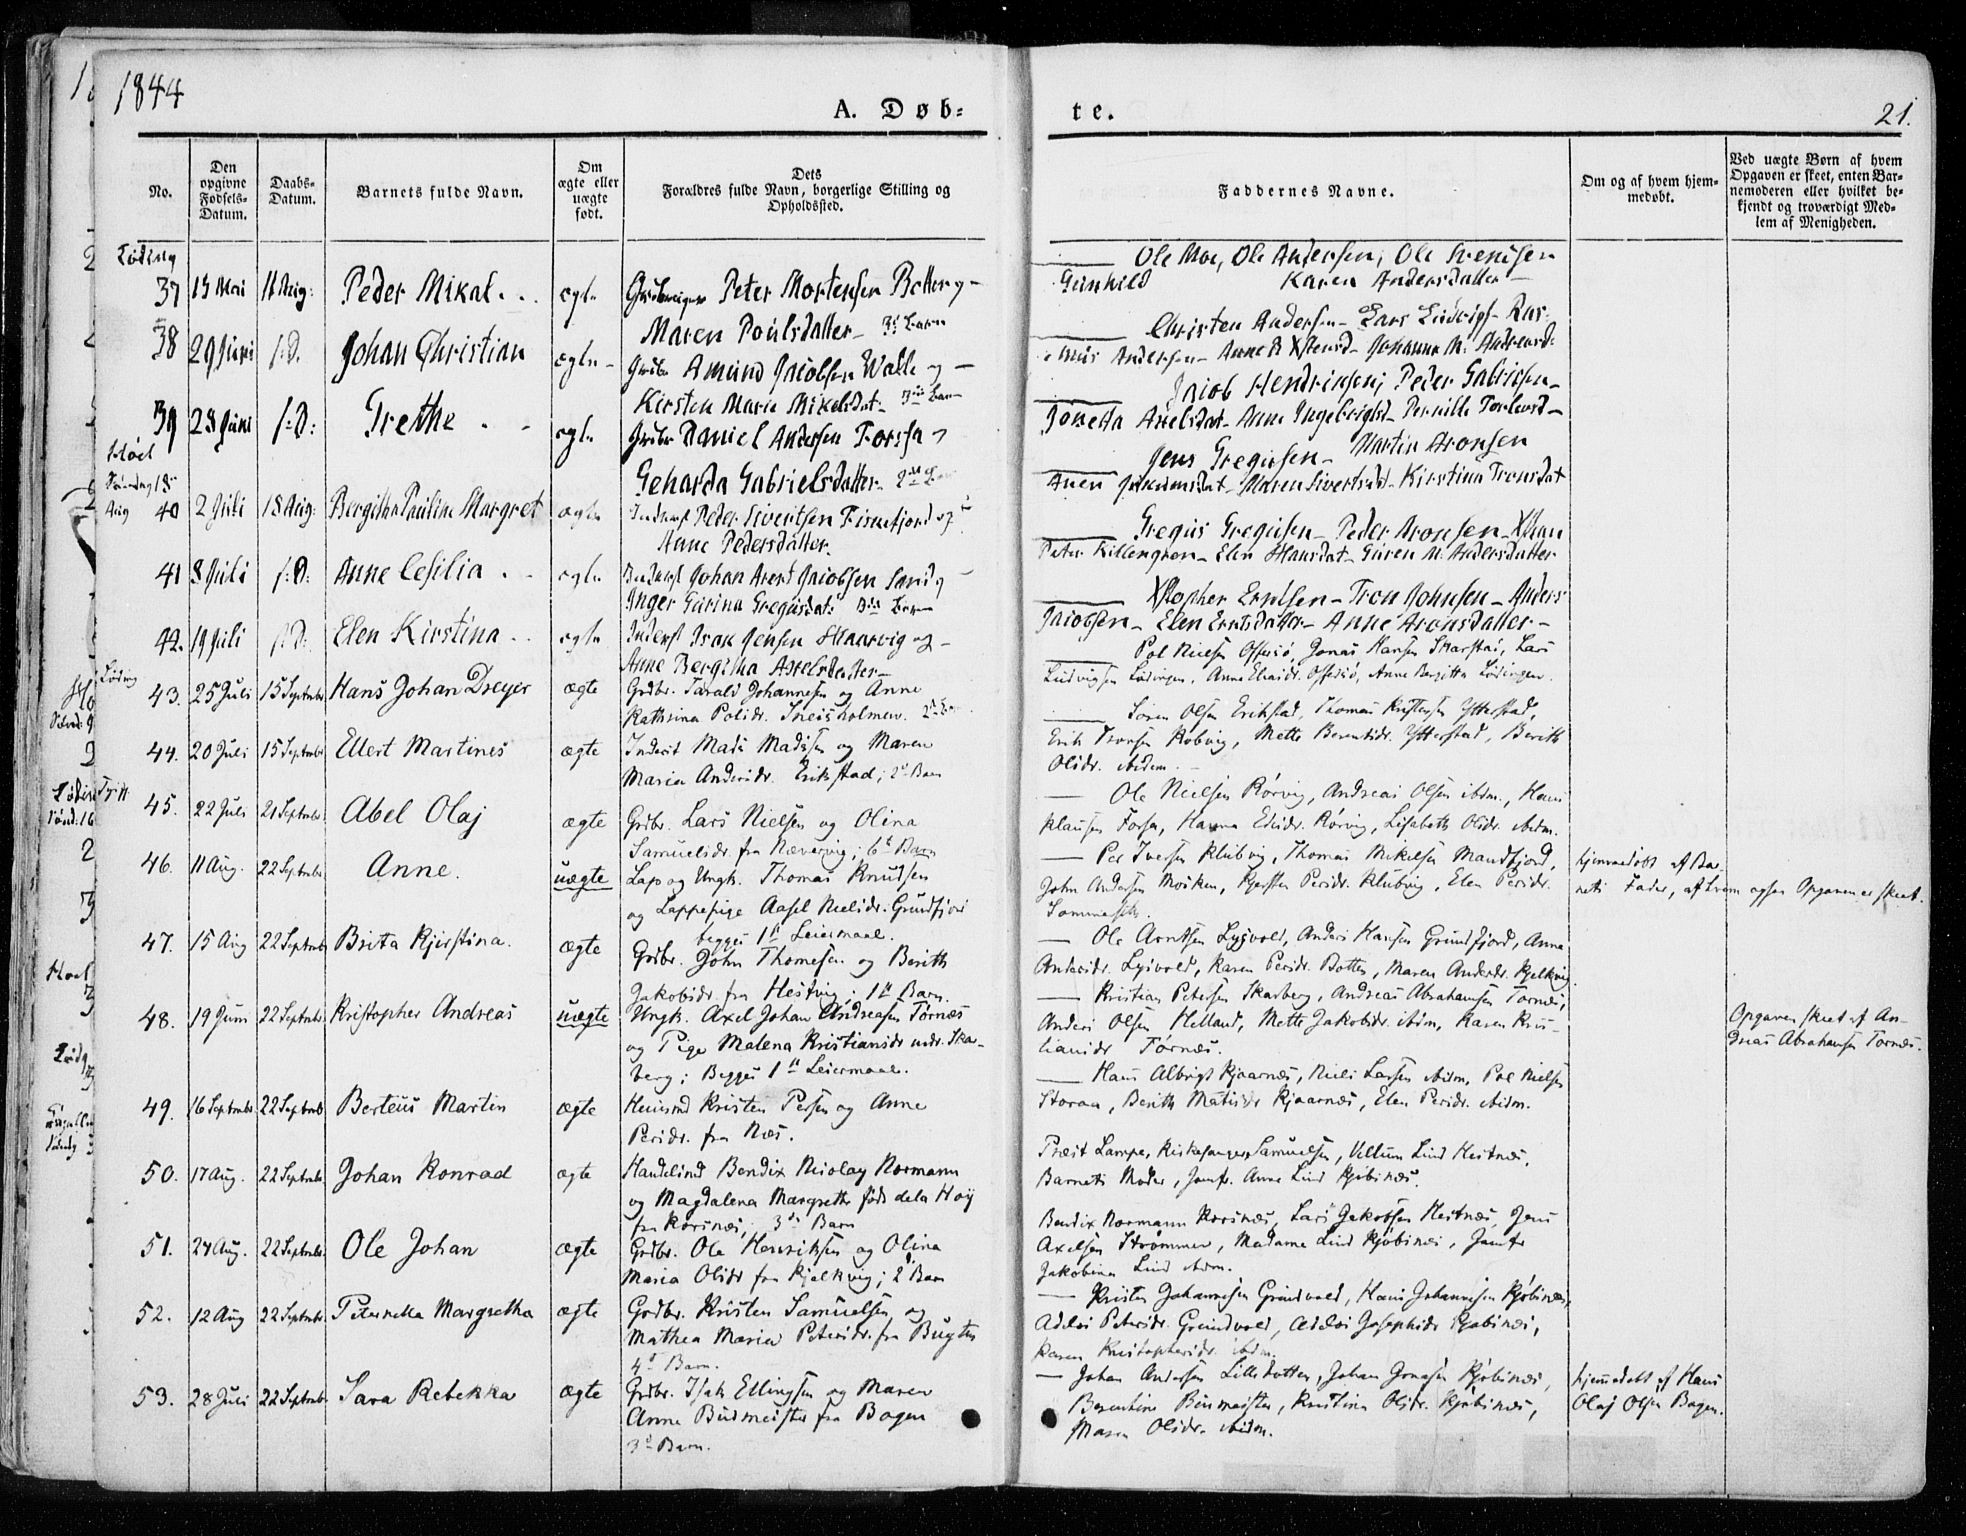 1844
A. Døb=
te.
21.
No.
Den opgivne Fødsels-Datum.
Daabs-Datum.
Barnets fulde Navn.
Om ægte eller uægte født.
Dets Forældres fulde Navn, borgerlige Stilling og Opholdssted.
Faddernes Navne.
Om og af hvem hjemmedøbt.
Ved uægte Børn af hvem Opgaven er skeet, enten Barnemoderen eller hvilket bekjendt og troværdigt Medlem af Menigheden.
Löding
37 11 Aug: Peder Mikal ægte Peter Mortensen Botten og
Maren Poulsdatter 3d Barn
Ole Moe, Ole Andersen, Ole Svendsen
Gunhild Karen Andersdatter
38 29 Juni s:D. Johan Christian ægte Amund Jacobsen Walle og
Kirsten Marie Mikelsdat
Christen Andersen Lars Ludvigs Ras-
mus Andersen Johanna M: Andreasd:
39 23 Juni s:D: Grethe ægte Daniel Andersen Forsfa
Geharda Gabrielsdatter 2det
Jacob Hendriksen, Peder Gabrielsen
Jonetta Axelsdat Anne Ingebrigtsd Pernille
Hoel
Søndag 18
Aug 40 2 Juli 18 Aug: Bergitha Pauline Margret ægte Inderst Peter Sivertsen Fiskefjord og
Anne Pedersdatter.
Jens Gregusen Martin Aronsen
Maren Sivertsdat Kirstina Tronsdat
41 8 Juli s:D: Anne Cesilia ægte Inderst Johan Arent Jacobsen Sand og
Inger Gurina Gregusdat:
Gregus Gregusen Peder Aronsen
Peter Killengreen Elen Hansdat Guren M. Andersdatter
42. 19 Juli s:D: Elen Kirstina ægte Inderst Isak Jensen Skaarvig og
Anne Bergitha Axelsdatter
Xstopher Erntsen Tron Johnsen Anders
Jacobsen Elen Erntsdatter Anne Aronsdatter
Löding
43. 25 Juli 15 Septmbr Hans Johan Dreyer ægte Grdbr. Tarald Johannesen og Anne
Kathrina Polsdr. Sneisholmen.
Pol Nielsen Offersö, Jonas Hansen Skarstad, Lars
Ludvigsen Lödingen, Anne Eliasdr. Offersö, Anne Bergitta Lödingen.
44. 20 Juli 15 Septmbr Ellert Martines ægte Inderst Mads Madsen og Maren
Maria Andersdr. Erikstad; 2d Barn
Sören Olsen Erikstad, Thomas Kristensen Ytterstad,
Erik Tronsen Robvig, Mette Berentsdr. Ytterstad, Berith
Olsdr. ibidem.
45. 22 Juli 21 Septmbr Abel Olaj ægte Grdbr. Lars Nielsen og Olina
Samuelsdr. fra Nævervig; 6d Barn
Ole Nielsen Rörvig, Andreas Olsen ibdm., Hans
Klausen Forsa, Hanna Edisdr. Rörvig, Lisabeth Olsdr. ibidm.
46. 11 Aug. 22 Septmbr Anne. uægte Lap og Ungk. Thomas Knudsen
og Lappepige Aasel Nielsdr. Grundfjord
begges 1ste Leiermaal.
Per Iversen Klubvig, Thomas Mikelsen Mandfjord,
John Andersen Mosken, Kjersten Persdr. Klubvig, Elen Persdr.
hjemmedøbt af Bar-
nets Fader, af hvem ogsaa Opgaven er skeet.
47. 15 Aug 22 Septmbr Brita Kjerstina. ægte Grdbr. John Thomesen og Berith
Jakobsdr. fra Hestvig; 1ste Barn.
Ole Arntsen Lysvold, Anders Hansen Grundfjord, Anna
Andersdr. Lysvold, Karen Persdr. Botten, Maren Andersdr. Kjelkvig.
48. 19 Juni 22 Septmbr Kristopher Andreas uægte Ungk. Axel Johan Andreasen Törnæs
og Pige Malena Kristiansdr Skar-
berg; Begges 1ste Leiermaal.
Kristian Petersen Skarberg, Andreas Abrahamsen Tornæs,
Anders Olsen Helland, Mette Jakobsdr. ibidm, Karen Kris-
tiansdr Törnæs.
Opgaven skeet af An-
dreas Abrahamsen Tornæs.
49. 16 Septmbr 22 Septmb Berteus Martin ægte Huusmd Kristen Persen og Anne
Persdr. fra Næs.
Hans Albrigt Kjaarnæs, Niels Larsen ibidm, Pol Nielsen
Storaa, Berith Matisdr Kjaarnæs, Elen Persdr. ibidm.
50. 17 Aug. 22 Septmbr Johan Konrad ægte Handelsmd Bendix Nicolay Normann
og Magdalena Margrethe föds dela Hoy
fra Korsnæs, 3d Barn
Præst Lampe, Kirkesanger Samuelsen, Villum Lind Hestnæs,
Barnets Moder, Jomfr. Anne Lind Kjøbsnæs.
51. 24 Aug. 22 Septmbr Ole Johan ægte Grdbr. Ole Henriksen og Olina
Maria Olsdr fra Kjelkvig; 2d Barn
Bendix Normann Korsnæs, Lars Jakobsen Hestnæs, Jens
Axelsen Strömmen, Madame Lind Kjöbsnæs, Jomfr
Jakobina Lind ibdm.
52. 12 Aug 22 Septmbr Peternella Margretha ægte Grdbr. Kristen Samuelsen og
Mathea Maria Petersdr. fra Bugten
4d Barn.
Kristen Johannesen Grundvold, Hans Johannesen Kjöbsnæs,
Petersdr. Grundvold, Josephsdr Kjøbsnæs,
Karen Kristophersdr. ibidm.
53. 28 Juli 22 Septmbr Sara Rebekka ægte Grdbr. Isak Ellingsen og Maren
Anne Busmeister fra Bogen
3d Barn.
Johan Andersen Lillebotten, Johan Jonasen Kjöbsnæs,
Berentine Busmeister, Kristina Olsdr. Kjöbsnæs,
Maren Olsdr. ibidm.
hjemmedøbt af Hans
Olaj Olsen Bogen.